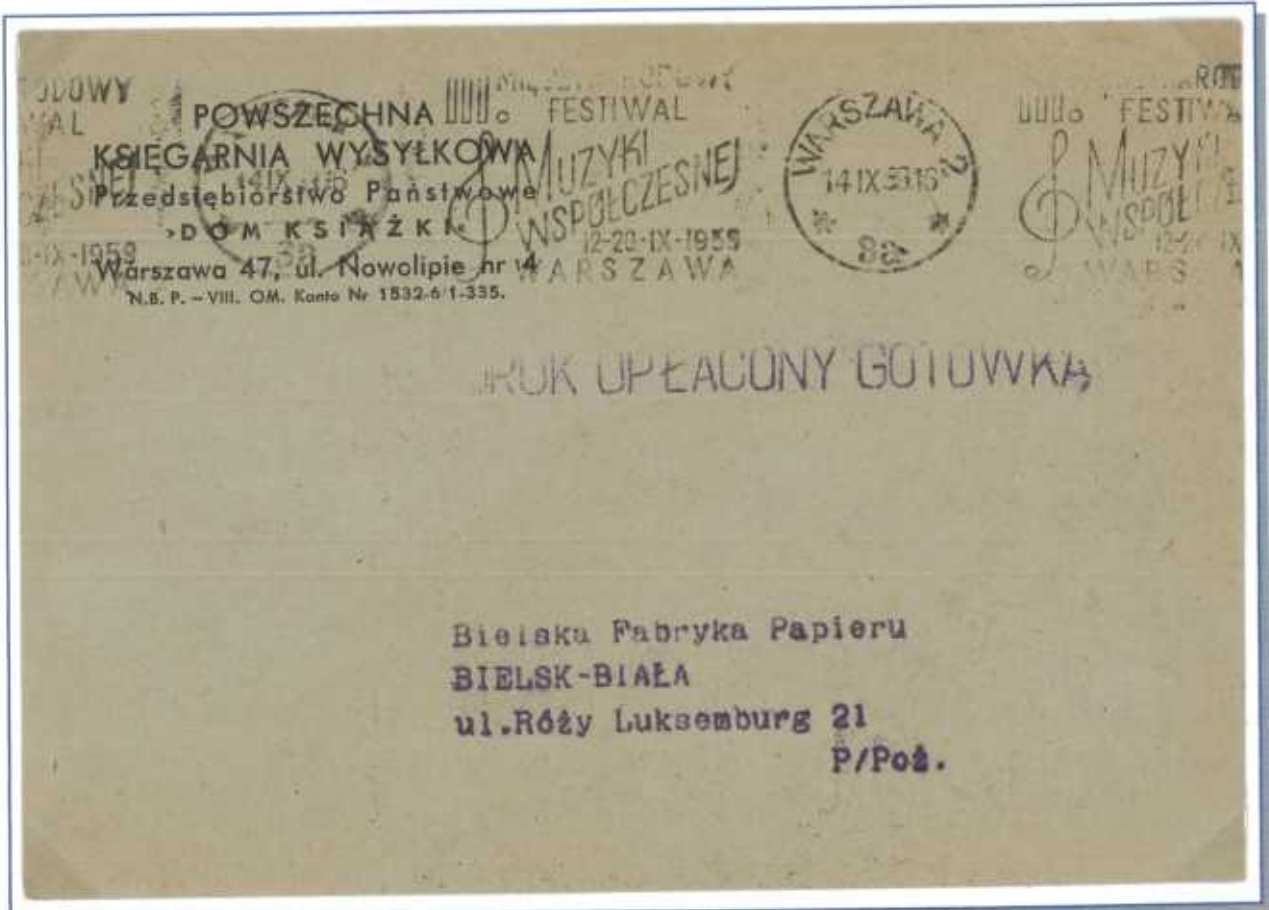 POWSZECHNA
KSIĘGARNIA WYSYŁKOWA
Przedsiębiorstwo Państwowe
›DOM KSIĄŻKI‹
Warszawa 47, ul. Nowolipie nr 4
N.B.P. – VIII. OM. Konto Nr 1532-6/1-335.
FESTIWAL
MUZYKI
WSPÓŁCZESNEJ
12-20-IX-1959
WARSZAWA
WARSZAWA 2
14 IX 59.16
8a
FESTIW
MUZYKI
WSPÓŁ
OPŁACONY GOTÓWKĄ
Bielska Fabryka Papieru
BIELSK-BIAŁA
ul.Róży Luksemburg 21
P/Poż.